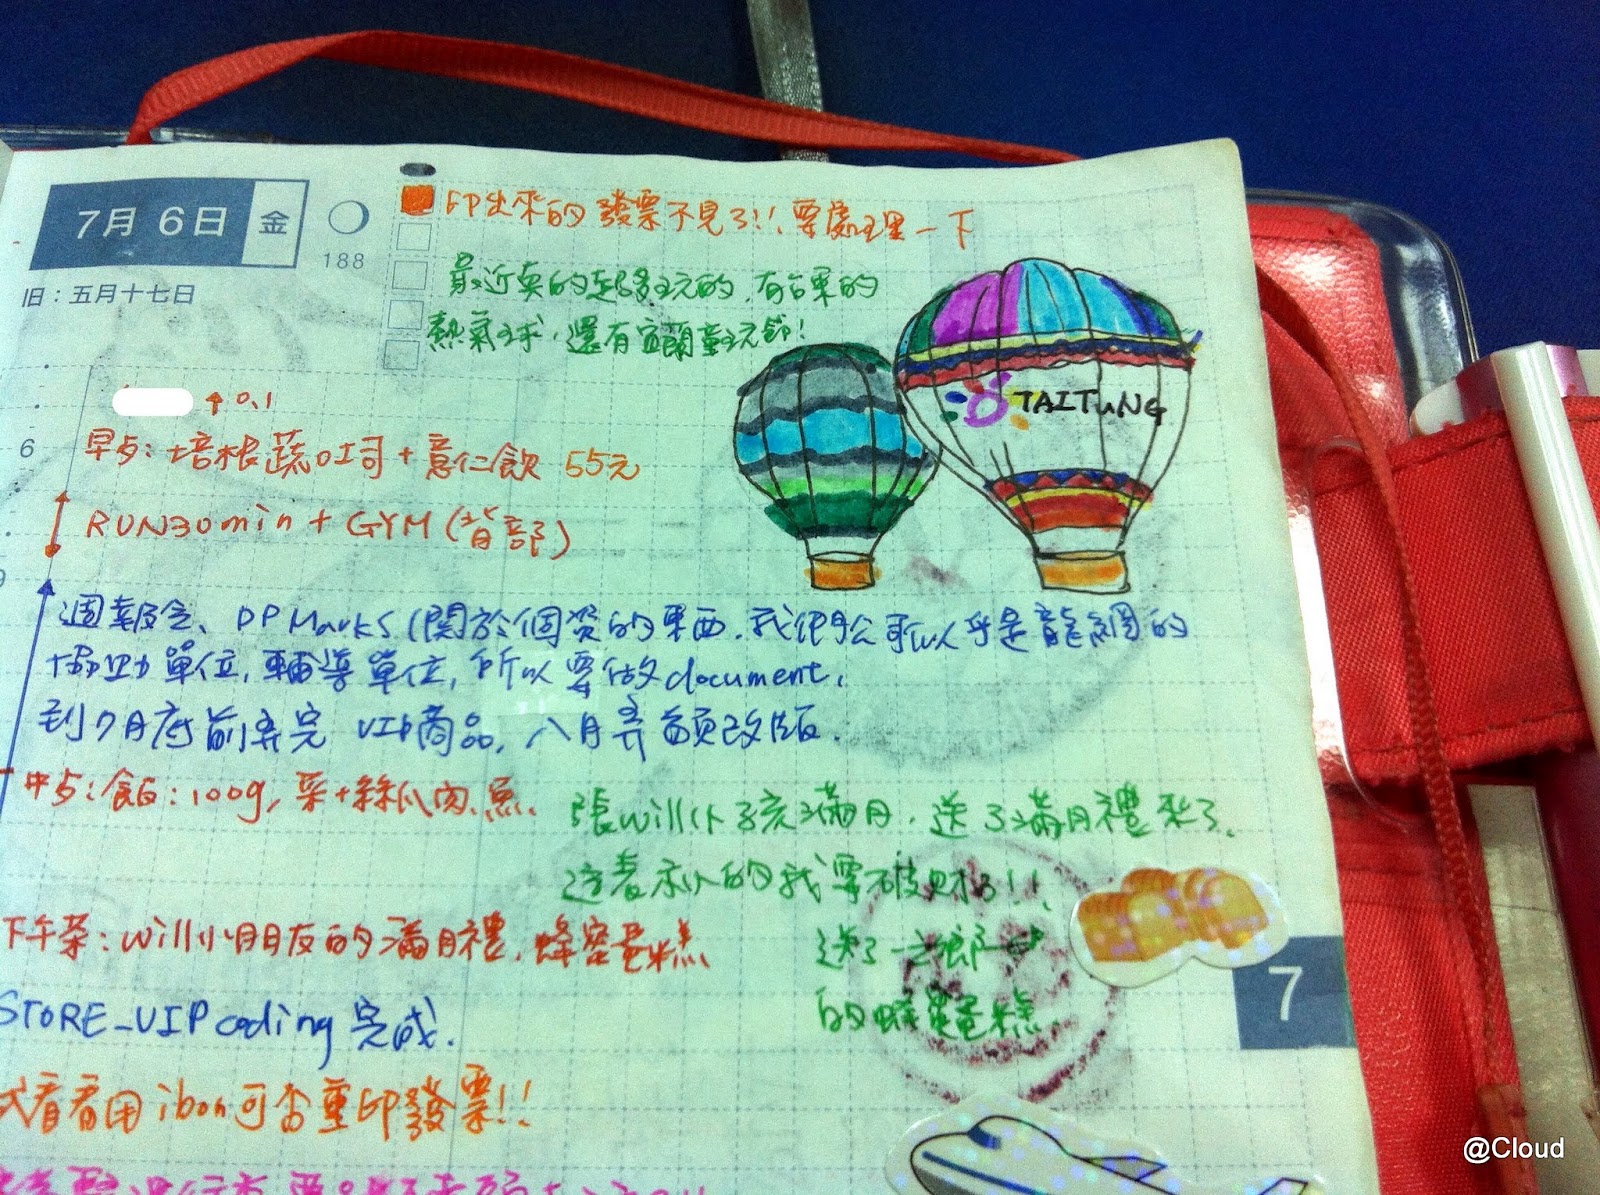 7月 6日 金
188
旧：五月十七日
印出來的發票不見了!!要處理一下
最近真的超多好玩的，有台東的
熱氣球，還有宜蘭童玩節!
TAITUNG
↑0.1
6
早点：培根蔬吐司+薏仁飲 55元
RUN30min + GYM (背部)
9
週報会、DP Marks (關於個資的東西，我們公司似乎是龍網的
協助單位，輔導單位，所以要做document，
到7月底前弄完 VIP商品，八月弄首頁改版.
中点：飯：100g，菜+絲瓜肉.魚.
張will小孩滿月，送了滿月禮來了.
這表示的我要破財了!!
下午茶：will小朋友的滿月禮，蜂蜜蛋糕
送了一之鄉
的蜂蜜蛋糕
7
STORE_VIP coding 完成.
試看看用ibon可否重印發票!!
@Cloud